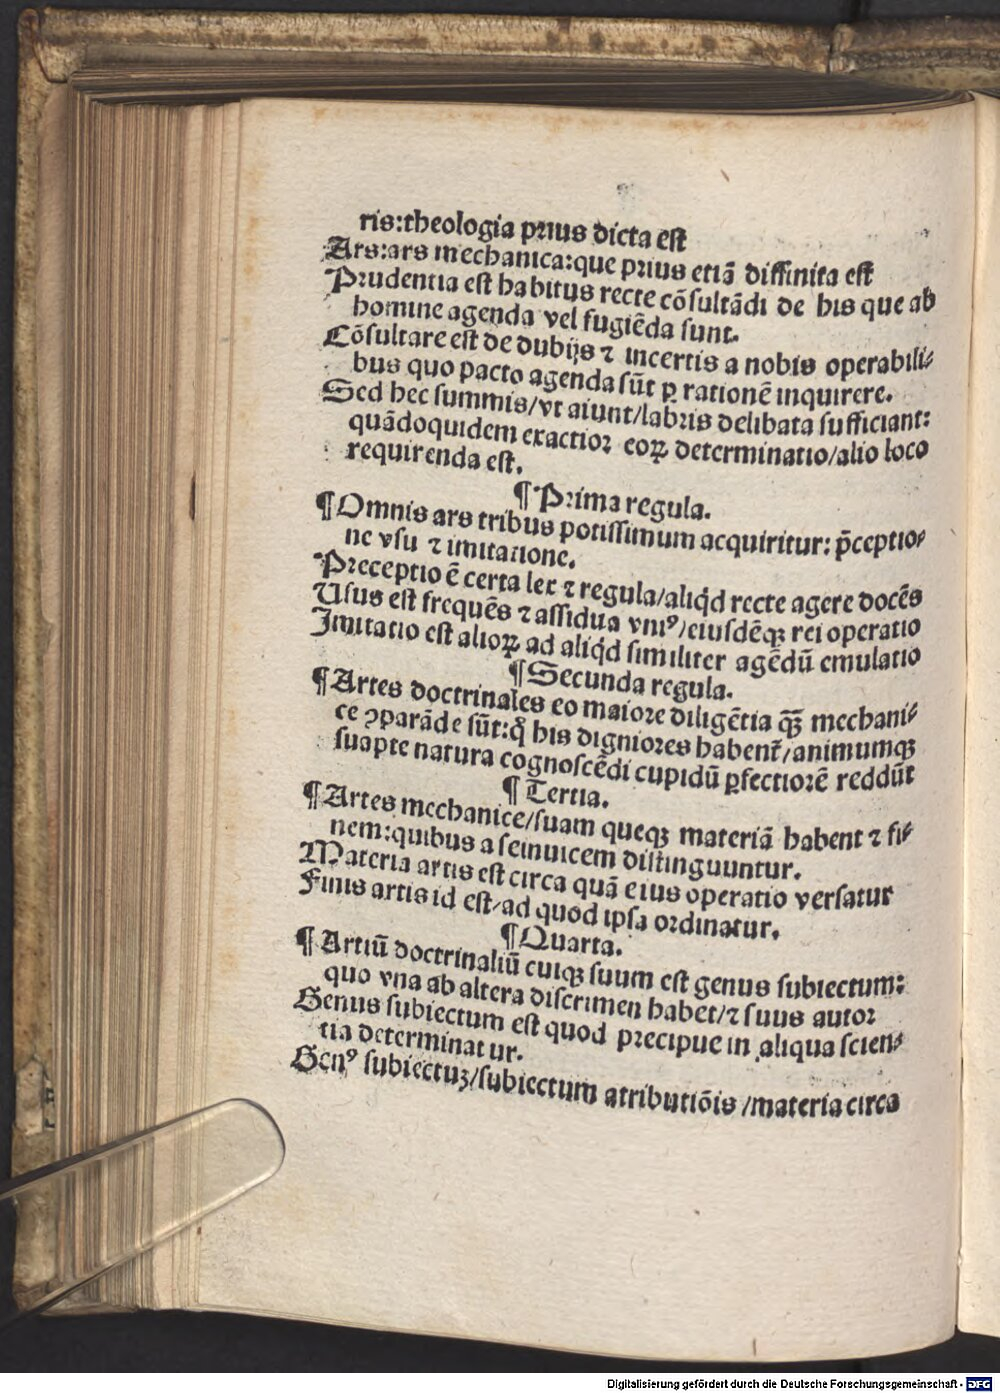 ris:theologia prius dicta est
Ars:ars mechanica:que prius etiā diffinita est
Prudentia est habitus recte cōsultādi de his que ab
homine agenda vel fugiēda sunt.
Cōsultare est de dubijs ⁊ incertis a nobis operabili⸗
bus quo pacto agenda sūt ꝑ rationē inquirere.
Sed hec summis/vt aiunt/labris delibata sufficiant:
quādoquidem exactior eoꝝ determinatio/alio loco
requirenda est.
¶ Prima regula.
¶ Omnis ars tribus potissimum acquiritur: p̄ceptio⸗
ne vsu ⁊ imitatione.
Preceptio ē certa lex ⁊ regula/aliqd̄ recte agere docēs
Usus est frequēs ⁊ assidua vniꝰ/eiusdēqꝫ rei operatio
Imitatio est alioꝝ ad aliqd̄ similiter agēdū emulatio
¶ Secunda regula.
¶ Artes doctrinales eo maiore diligētia qꝫ̄ mechani⸗
ce ꝯparāde sūt:qͦ his digniores habent᷑/animumqꝫ
suapte natura cognoscēdi cupidū ꝑfectiorē reddūt
¶ Tertia.
¶ Artes mechanice/suam queqꝫ materiā habent ⁊ fi⸗
nem:quibus a seinuicem distinguuntur.
Materia artis est circa quā eius operatio versatur
Finis artis id est/ad quod ipsa ordinatur.
¶ Quarta.
¶ Artiū doctrinaliū cuiqꝫ suum est genus subiectum:
quo vna ab altera discrimen habet/⁊ suus autor
Genus subiectum est quod precipue in aliqua scien⸗
tia determinatur.
Genꝰ subiectuꝫ/subiectum atributiōis /materia circa
Digitalisierung gefördert durch die Deutsche Forschungsgemeinschaft - DFG